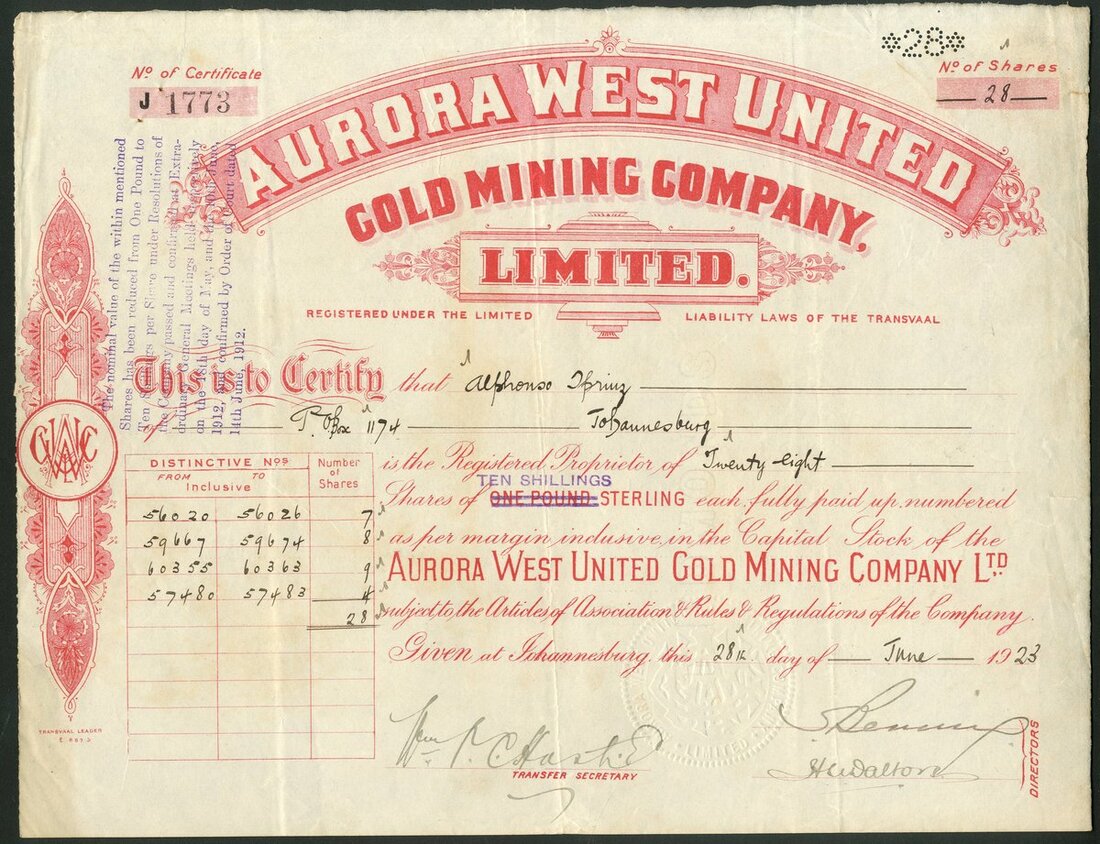 *28*
No of Certificate
J 1773
No of Shares
28
AURORA WEST UNITED
GOLD MINING COMPANY,
LIMITED.
REGISTERED UNDER THE LIMITED LIABILITY LAWS OF THE TRANSVAAL
The nominal value of the within mentioned
Shares has been reduced from One Pound to
Ten Shillings per Share under Resolutions of
the Company passed and confirmed at Extra-
ordinary General Meetings held respectively
on the 18th day of May, and the June,
1912, and confirmed by Order of Court dated
14th June, 1912.
This is to Certify that Alphonso
of P.O. Box 1174 Johannesburg
is the Registered Proprietor of Twenty eight
TEN SHILLINGS
Shares of ONE POUND STERLING each, fully paid up, numbered
as per margin inclusive, in the Capital Stock of the
AURORA WEST UNITED GOLD MINING COMPANY LTD.
subject, to, the Articles, of Association & Rules & Regulations of the Company.
Given, at Johannesburg, this 28th day of June 1923
DISTINCTIVE Nos
Number of Shares
FROM TO
Inclusive
56020 56026 7
59667 59674 8
60355 60363 9
57480 57483 4
28
TRANSVAAL LEADER
TRANSFER SECRETARY
DIRECTORS
LIMITED